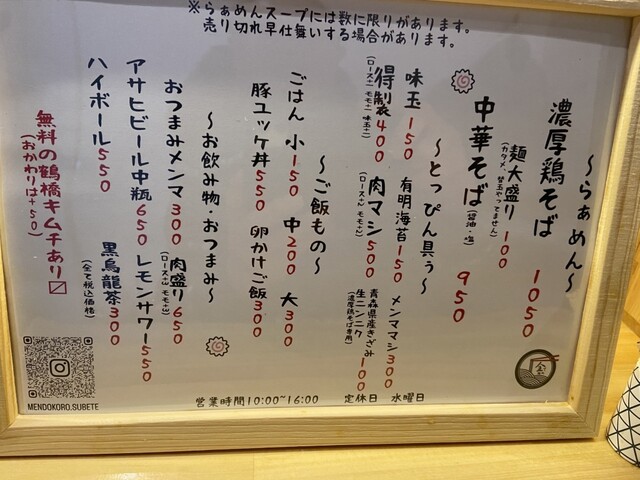 ※らぁめんスープには数に限りがあります。
売り切れ早仕舞いする場合があります。
～らぁめん～
濃厚鶏そば 1050
麺大盛り 100
(カタメ、替玉やってません)
中華そば (醤油・塩) 950
～とっぴん具ぅ～
味玉 150 有明海苔 150 メンママシ 300
得製 400 肉マシ 500 青森県産きざみ生ニンニク 100
(ロース+1 モモ+1 味玉+1) (ロース+2 モモ+2) (濃厚鶏そば専用)
～ご飯もの～
ごはん 小 150 中 200 大 300
豚ユッケ丼 550 卵かけご飯 300
～お飲み物・おつまみ～
おつまみメンマ 300 肉盛り 650
(ロース+3 モモ+3)
アサヒビール中瓶 650 レモンサワー 550
ハイボール 550 黒烏龍茶 300
(全て税込価格)
無料の鶴橋キムチあり〼
(おかわりは+50)
営業時間10:00~16:00 定休日 水曜日
MENDOKORO.SUBETE